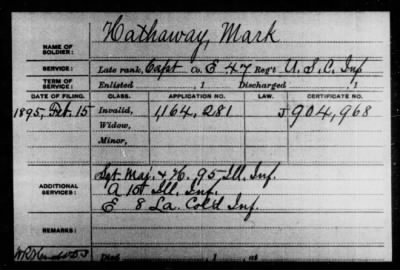 NAME OF SOLDIER: Hathaway, Mark
SERVICE: Late rank, Capt Co. E 47 Reg't U.S.C. Inf
TERM OF SERVICE: Enlisted , 1 Discharged , 1
DATE OF FILING. CLASS. APPLICATION NO. LAW. CERTIFICATE NO.
1895, Feb. 15 Invalid, 1,164,281 J 904,968
Widow,
Minor,
ADDITIONAL SERVICES: Sgt Maj. & H. 95 Ill. Inf.
A 10t Ill. Inf.
E 8 La. Col'd Inf.
REMARKS:
Died , 1 , at